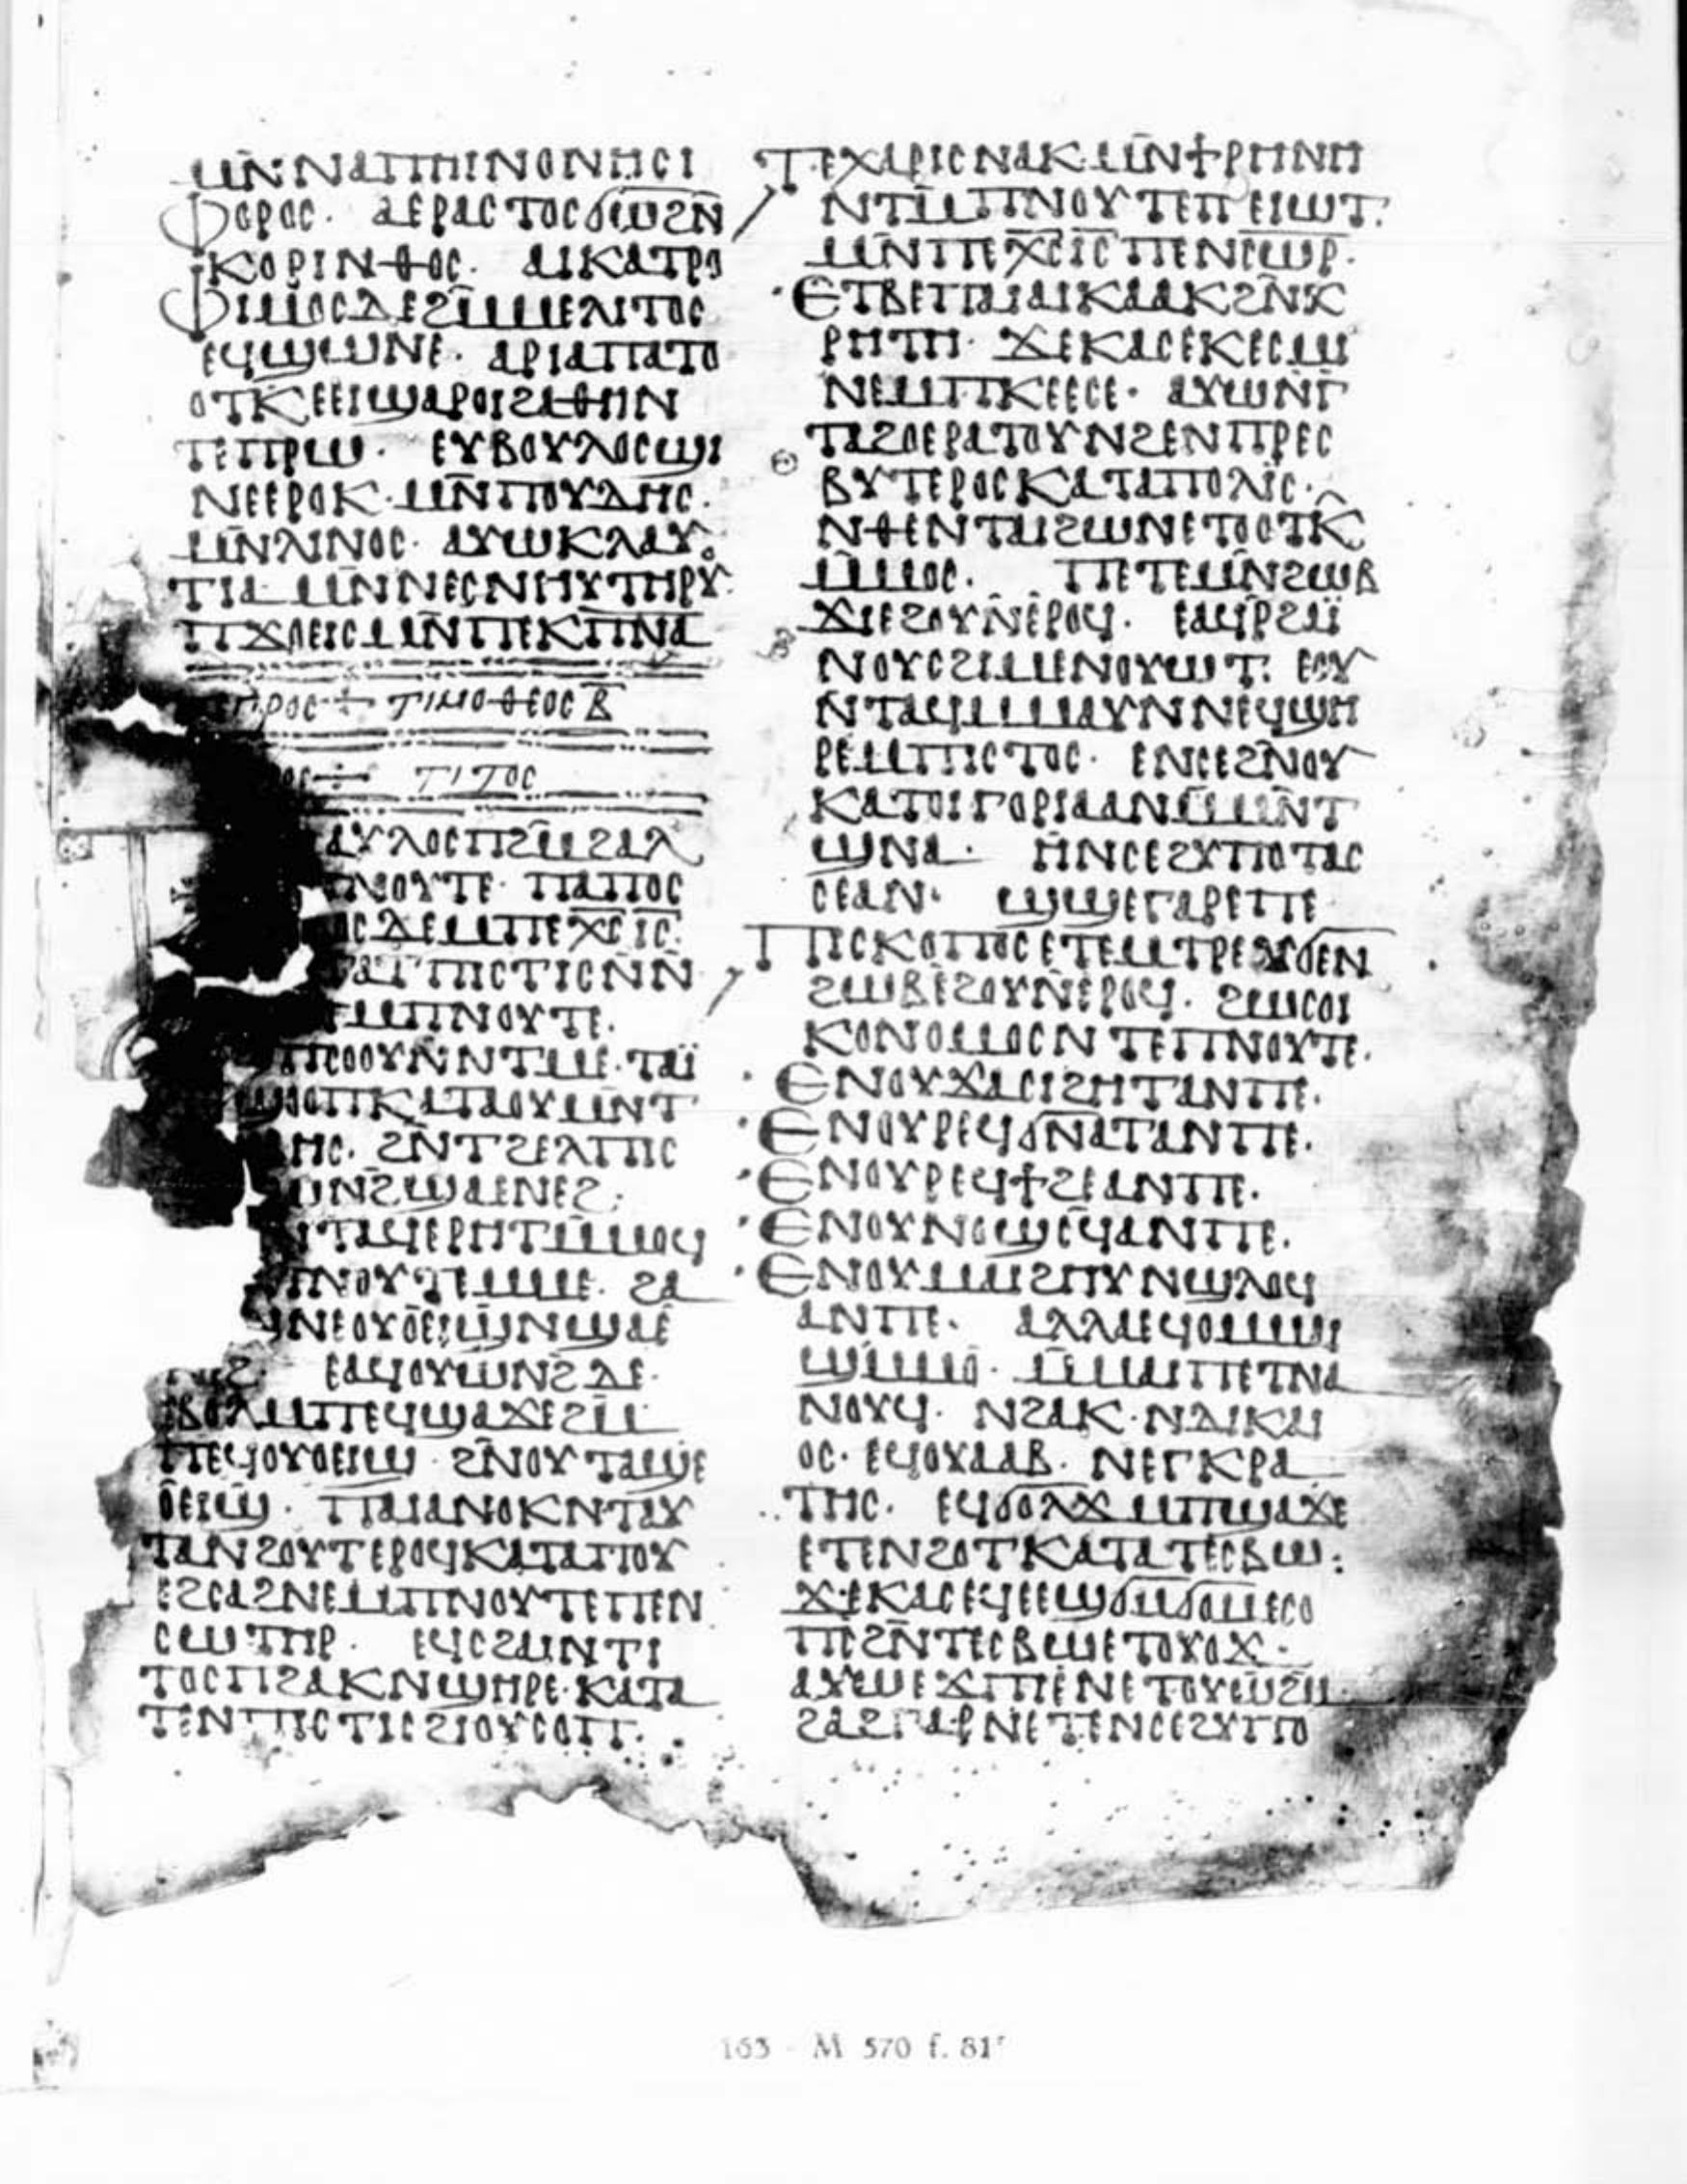 ⲙⲛ̄ⲛⲁⲡⲏⲓⲛⲟⲛⲏⲥⲓ
ⲫⲟⲣⲟⲥ· ⲁⲉⲣⲁⲥⲧⲟⲥϭⲱϩⲛ̄
ⲕⲟⲣⲓⲛⲑⲟⲥ· ⲁⲓⲕⲁⲧⲣⲟ
ⲫⲓⲙⲟⲥⲇⲉϩⲙ̄ⲙⲉⲗⲓⲧⲟⲥ
ⲉϥϣⲱⲛⲉ· ⲁⲣⲓⲁⲡⲁⲧⲟ
ⲟⲧⲕⲉⲉⲓϣⲁⲣⲟⲓϩⲁⲑⲏⲛ
ⲧⲉⲡⲣⲱ· ⲉⲩⲃⲟⲩⲗⲟⲥϣⲓ
ⲛⲉⲉⲣⲟⲕ·ⲙⲛ̄ⲡⲟⲩⲇⲏⲥ·
ⲙⲛ̄ⲗⲓⲛⲟⲥ· ⲁⲩⲱⲕⲗⲁⲩ
ⲧⲓⲁ ⲙⲛ̄ⲛⲉⲥⲛⲏⲩⲧⲏⲣⲩ·
ⲡϫⲟⲉⲓⲥⲙⲛ̄ⲡⲉⲕⲡ̄ⲛ̄ⲁ̄
ⲡⲣⲟⲥ ÷ ⲧⲓⲙⲟⲑⲉⲟⲥ ⲃ̄
ⲟⲥ ÷ ⲧⲓⲧⲟⲥ
ⲁⲩⲗⲟⲥⲡϩⲙ̄ϩⲁⲗ
ⲛⲟⲩⲧⲉ· ⲡⲁⲡⲟⲥ
ⲟⲥⲇⲉⲙⲡⲉⲭ̄ⲥ̄ⲓ̄ⲥ̄·
ⲁⲧⲡⲓⲥⲧⲓⲥⲛ̄ⲛ̄
ⲡ̄ⲙ̄ⲡⲛⲟⲩⲧⲉ·
ⲡⲥⲟⲟⲩⲛ̄ⲛⲧⲙⲉ·ⲧⲁⲓ̈
ϣⲟⲟⲡⲕⲁⲧⲁⲟⲩⲙⲛ̄ⲧ
ⲏⲥ· ϩⲛ̄ⲧϩⲉⲗⲡⲓⲥ
ⲱⲛϩ̄ϣⲁⲉⲛⲉϩ:
ⲛⲧⲁϥⲉⲣⲏⲧⲙ̄ⲙⲟϥ
ⲡⲛⲟⲩⲧⲉⲙⲙⲉ· ϩⲁ
ⲑⲏⲛⲉⲟⲩⲟⲉⲓϣⲛϣⲁⲉ
ⲛⲉϩ· ⲉⲁϥⲟⲩⲱⲛϩ̄ⲇⲉ·
ⲉⲃⲟⲗⲙⲡⲉϥϣⲁϫⲉϩⲙ̄
ⲡⲉϥⲟⲩⲟⲉⲓϣ· ϩⲛ̄ⲟⲩⲧⲁϣⲉ
ⲟⲉⲓϣ· ⲡⲁⲓⲁⲛⲟⲕⲛⲧⲁⲩ
ⲧⲁⲛϩⲟⲩⲧⲉⲣⲟϥⲕⲁⲧⲁⲡⲟⲩ
ⲉϩⲥⲁϩⲛⲉⲙⲡⲛⲟⲩⲧⲉⲡⲉⲛ
ⲥⲱⲧⲏⲣ· ⲉϥⲥϩⲁⲓⲛⲧⲓ
ⲧⲟⲥⲡϩⲁⲕⲛϣⲏⲣⲉ·ⲕⲁⲧⲁ
ⲧⲉⲛⲡⲓⲥⲧⲓⲥϩⲓⲟⲩⲥⲟⲡ·
ⲧⲉⲭⲁⲣⲓⲥⲛⲁⲕ·ⲙⲛ̄ϯⲣⲏⲛⲏ
ⲛⲧⲙ̄ⲡⲛⲟⲩⲧⲉⲡⲉⲓⲱⲧ·
ⲙⲛ̄ⲡⲉⲭ̄ⲥ̄ⲓ̄ⲥ̄ⲡⲉⲛⲥ̄ⲱ̄ⲣ̄·
ⲉⲧⲃⲉⲡⲁⲓⲁⲓⲕⲁⲁⲕϩⲛ̄ⲕ
ⲣⲏⲧⲏ· ϫⲉⲕⲁⲥⲉⲕⲉⲥⲙ
ⲛⲉⲙⲡⲕⲉⲉⲥⲉ· ⲁⲩⲱⲛⲅ̄
ⲧⲁϩⲟⲉⲣⲁⲧⲟⲩⲛϩⲉⲛⲡⲣⲉⲥ
ⲃⲩⲧⲉⲣⲟⲥⲕⲁⲧⲁⲡⲟⲗⲓⲥ·
ⲛⲑⲉⲛⲧⲁⲓϩⲱⲛⲉⲧⲟⲟⲧⲕ
ⲙ̄ⲙⲟⲥ· ⲡⲉⲧⲉⲙⲛ̄ϩⲱⲃ
ϫⲓⲉϩⲟⲩⲛ̄ⲉⲣⲟϥ· ⲉⲁϥⲣ̄ϩⲁⲓ̈
ⲛⲟⲩⲥϩⲓⲙⲉⲛⲟⲩⲱⲧ: ⲉⲟⲩ
ⲛⲧⲁϥⲙⲙⲁⲩⲛⲛⲉϥϣⲏ
ⲣⲉⲙⲡⲓⲥⲧⲟⲥ· ⲉⲛⲥⲉϩⲛ̄ⲟⲩ
ⲕⲁⲧⲟⲓⲅⲟⲣⲓⲁⲁⲛⲙ̄ⲙⲛ̄ⲧ
ϣⲛⲁ· ⲏⲛⲥⲉϩⲩⲡⲟⲧⲁⲥ
ⲥⲉⲁⲛ· ϣϣⲉⲅⲁⲣⲉⲡⲉ
ⲡⲓⲥⲕⲟⲡⲟⲥⲉⲧⲉⲙⲧⲣⲉⲩϭⲉⲛ
ϩⲱⲃⲉϩⲟⲩⲛ̄ⲉⲣⲟϥ· ϩⲱⲥⲟⲓ
ⲕⲟⲛⲟⲙⲟⲥⲛⲧⲉⲡⲛⲟⲩⲧⲉ·
ⲉⲛⲟⲩϫⲁⲥⲓϩⲏⲧⲁⲛⲡⲉ·
ⲉⲛⲟⲩⲣⲉϥϭⲛ̄ⲁⲧⲁⲛⲡⲉ·
ⲉⲛⲟⲩⲣⲉϥϯϩⲉⲁⲛⲡⲉ·
ⲉⲛⲟⲩⲛⲟϣⲥ̄ϥⲁⲛⲡⲉ·
ⲉⲛⲟⲩⲙⲁⲓϩⲏⲩⲛϣⲗⲟϥ
ⲁⲛⲡⲉ· ⲁⲗⲗⲁⲉϥⲟⲙⲙⲁⲓ
ϣⲙ̄ⲙⲟ· ⲙ̄ⲙⲁⲓⲡⲉⲧⲛⲁ
ⲛⲟⲩϥ· ⲛϩⲁⲕ·ⲛⲇⲓⲕⲁⲓ
ⲟⲥ· ⲉϥⲟⲩⲁⲁⲃ· ⲛⲉⲅⲕⲣⲁ
ⲧⲏⲥ· ⲉϥϭⲟⲗϫ̄ⲙⲡϣⲁϫⲉ
ⲉⲧⲉⲛϩⲟⲧⲕⲁⲧⲁⲧⲉⲥⲃⲱ:
ϫⲉⲕⲁⲥⲉϥⲉⲉϣϭⲙ̄ϭⲟⲙⲉⲥⲟ
ⲡⲥϩⲛ̄ⲧⲉⲥⲃⲱⲉⲧⲟⲩⲟϫ·
ⲁⲩⲱⲉϫⲡⲓⲉⲛⲉⲧⲟⲩⲱϩⲙ·
ϩⲁϩⲅⲁⲣⲛⲉⲧⲉⲛⲥⲉϩⲩⲡⲟ
163 - M 570 f. 81ʳ